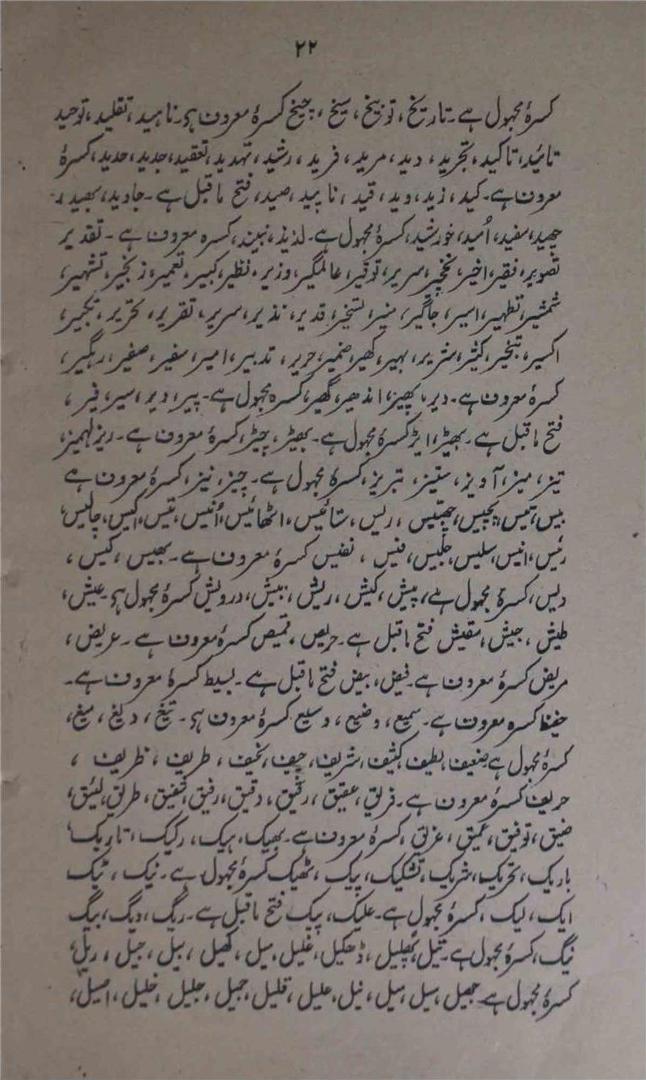 ۲۲
کسرۂ مجہول ہے۔ تاریخ، توبیخ، سیخ، چیخ کسرۂ معروف ہی۔ ناہید، تقلید، توحید
تائید، تاکید، تجرید، دید، مرید، فرید، رشید، تہدید، تعقید، جدید، حدید، کسرۂ
معروف ہے۔ کید، زید، وید، قید، ناپید، صید، فتح ماقبل ہے۔ جاوید، بھید،
چھید، سفید، اُمید، خورشید، کسرۂ مجہول ہے۔ لذیذ، نبیذ، کسرہ معروف ہے۔ تقدیر
تصویر، فقیر، اخیر، نخچیر، سریر، توقیر، عالمگیر، وزیر، نظیر، کبیر، تعمیر، زنجیر، تشہیر،
شمشیر، تطہیر، اسیر، جاگیر، منیر، تسخیر، قدیر، نذیر، سریر، تقریر، تحریر،
اکسیر، کثیر، شریر، بہیر، کھیر، ضمیر، حریر، تدبیر، امیر، سفیر، صفیر، رہگیر،
کسرۂ معروف ہے۔ دیر، پھیر، اندھیر، گھیر، کسرہ مجہول ہے۔ پیر، دیر، سیر،
فتح ماقبل ہے۔ بھیڑ، ایڑ کسرۂ مجہول ہے۔ بھیڑ، چیڑ، کسرۂ معروف ہے۔ ریز، مہمیز،
تیز، میز، آویز، ستیز، تبریز، کسرۂ مجہول ہے۔ چیز، نیز، کسرۂ معروف ہے
بیس، تیس، پچیس، چھتیس، ریس، ستائیس، اٹھائیس، اُنیس، تیس، اکیس، چالیس
رئیس، انیس، سلیس، جلیس، نفیس کسرۂ معروف ہے۔ بھیس، کیس،
دیس، کسرۂ مجہول ہے، پیش، کیش، ریش، بیش، درویش کسرۂ مجہول ہی۔ عیش،
طیش، جیش، مقیش فتح ماقبل ہے۔ حریص، قمیص کسرۂ معروف ہے۔ عریض،
مریض کسرۂ معروف ہے۔ فیض، بیض فتح ماقبل ہے۔ بسیط کسرۂ معروف ہے۔
کسرہ معروف ہے۔ سمیع، وضیع، وسیع کسرۂ معروف ہی۔ تیغ، دریغ، میغ،
کسرۂ مجہول ہے ضعیف، لطیف، کثیف، شریف، نحیف، ظریف،
حریف کسرۂ معروف ہے۔ فریق، عقیق، رحیق، دقیق، رفیق، شفیق، طریق، لئیق،
ضیق، توفیق، عمیق، غریق، کسرۂ معروف ہے۔ بھیک، ہیک، رکیک، تاریک
باریک، تحریک، شریک، تشکیک، پیک، ٹھیک کسرۂ مجہول ہے۔ نیک، ٹیک
ایک، لیک، کسرۂ مجہول ہے۔ علیک، پیک فتح ماقبل ہے۔ ریگ، دیگ، بیگ
نیگ، کسرۂ مجہول ہے۔ تیل، پھلیل، ڈھکیل، غلیل، میل، کھیل، بیل، جیل، ریل
کسرۂ مجہول ہے۔ جھیل، سیل، میل، نیل، علیل، قلیل، جمیل، جلیل، خلیل، اصیل،